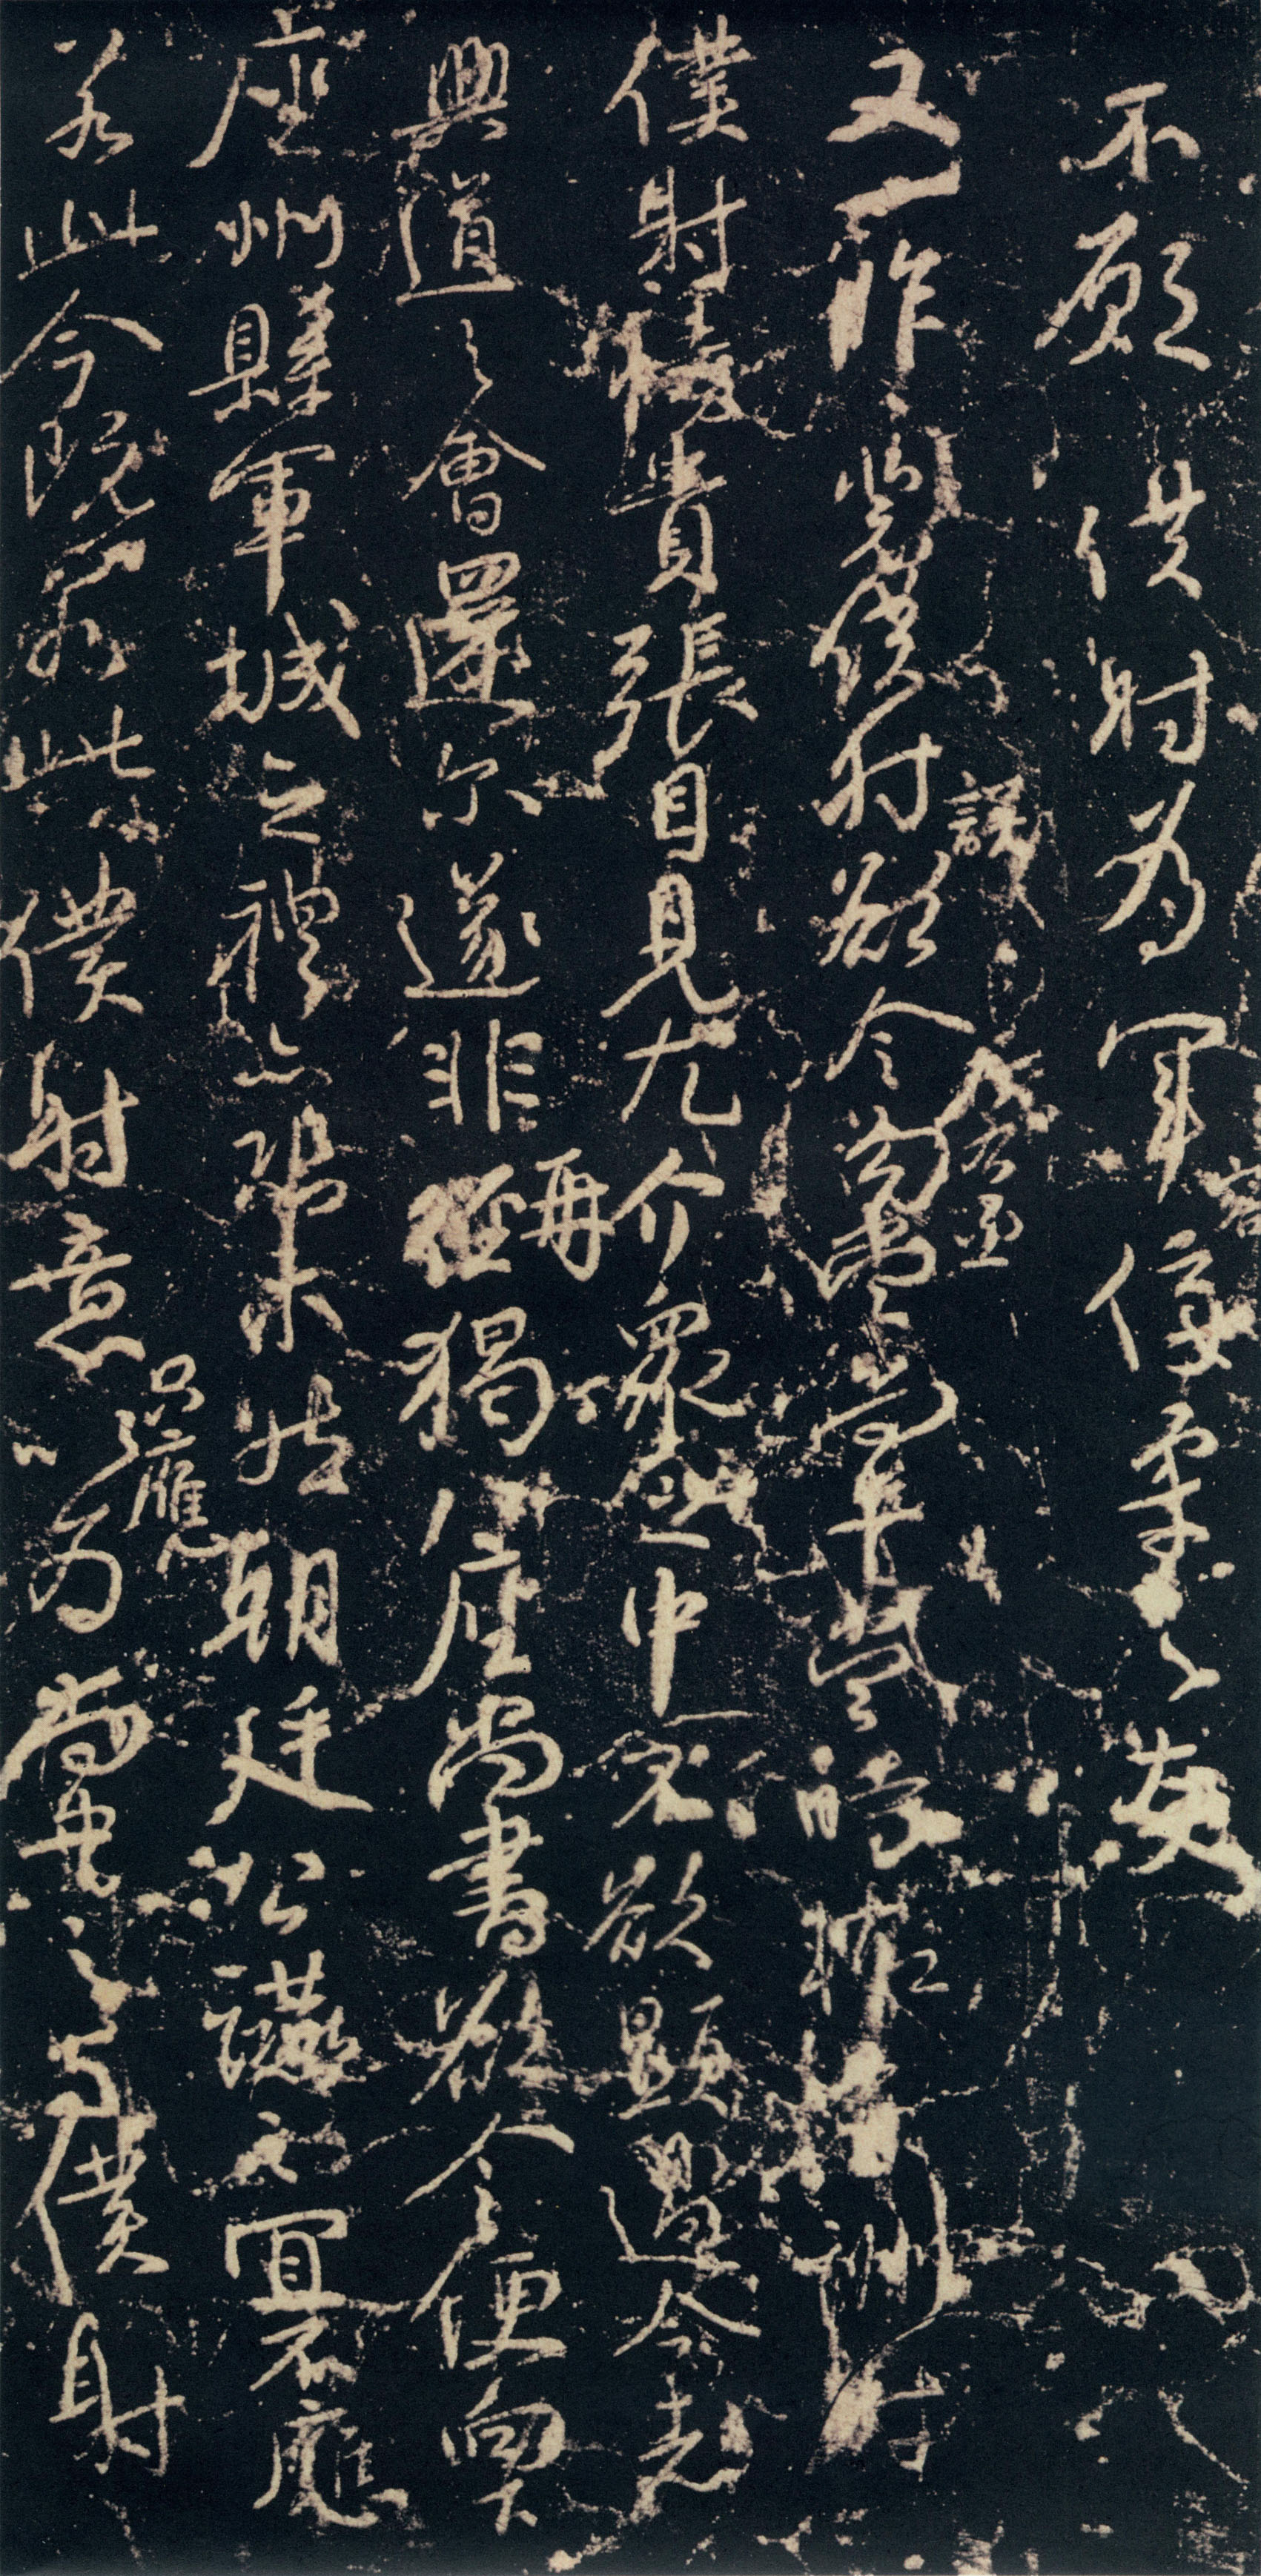 不願僕射為軍容佞柔之友
又一昨裴僕射誤欲令左右丞勾當尚書當時輒有酬對
僕射恃貴張目見尤介眾之中不欲顯過今者
興道之會還尔遂非再猲八座尚書欲令便向下
座州縣軍城之禮亦恐未然朝廷公讌之宜不應
若此今既若此僕射意只應以為尚書之與僕射